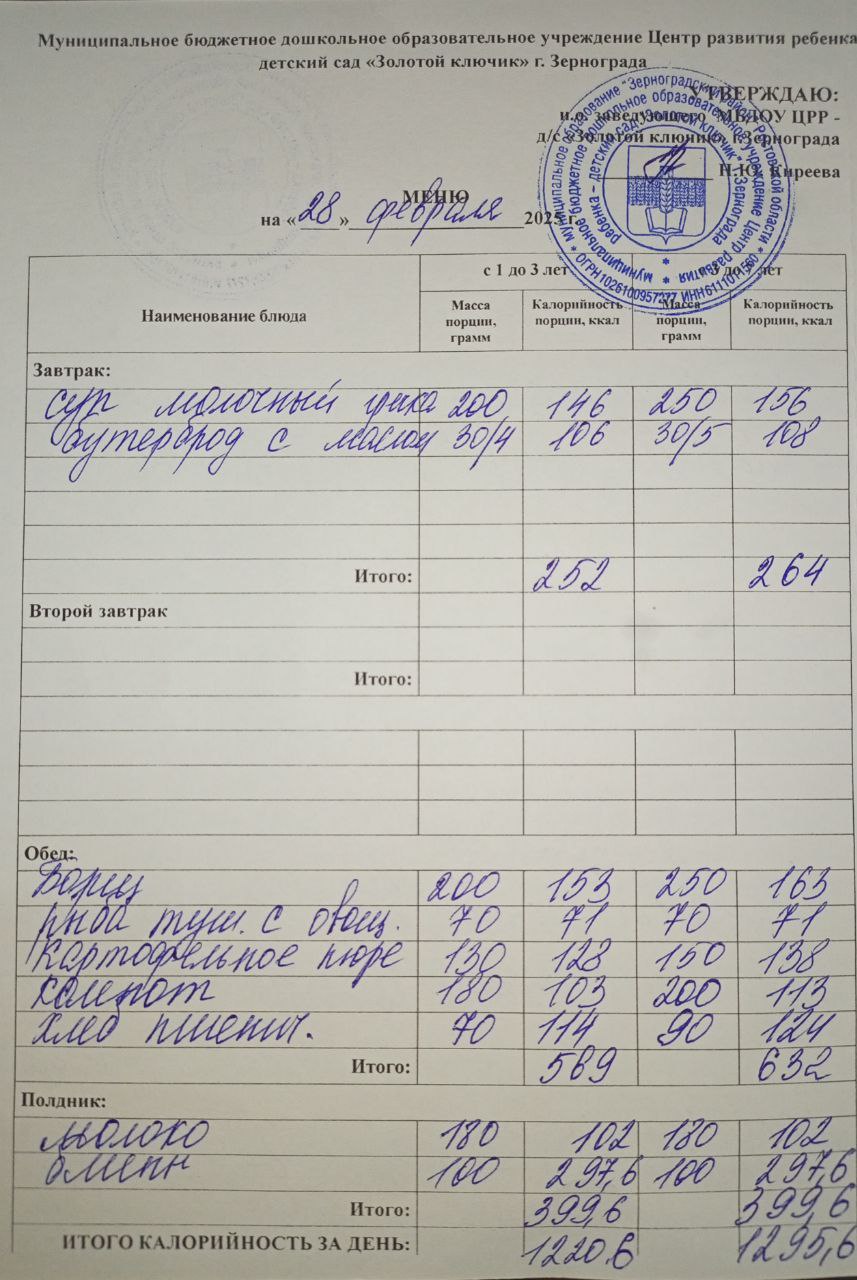 Муниципальное бюджетное дошкольное образовательное учреждение Центр развития ребенка
детский сад «Золотой ключик» г. Зернограда
УТВЕРЖДАЮ:
и.о. заведующего МБДОУ ЦРР -
д/с «Золотой ключик» г.Зернограда
Н.Ю. Киреева
МЕНЮ
на «28» февраля 2025 г.
Наименование блюда с 1 до 3 лет с 3 до 7 лет
Масса порции, грамм Калорийность порции, ккал Масса порции, грамм Калорийность порции, ккал
Завтрак:
суп молочный греча 200 146 250 156
бутерброд с маслом 30/4 106 30/5 108
Итого: 252 264
Второй завтрак
Итого:
Обед:
Борщ 200 153 250 163
рыба туш. с овощ. 70 71 70 71
картофельное пюре 130 128 150 138
компот 180 103 200 113
хлеб пшенич. 70 114 90 124
Итого: 569 632
Полдник:
молоко 180 102 180 102
блины 100 297,6 100 297,6
Итого: 399,6 399,6
ИТОГО КАЛОРИЙНОСТЬ ЗА ДЕНЬ: 1220.6 1295,6
муниципальное образование "Зерноградский район" Ростовской области
ОГРН 1026100957277 ИНН 6111011560
муниципальное бюджетное дошкольное образовательное учреждение Центр развития
ребенка – детский сад "Золотой ключик" г. Зернограда